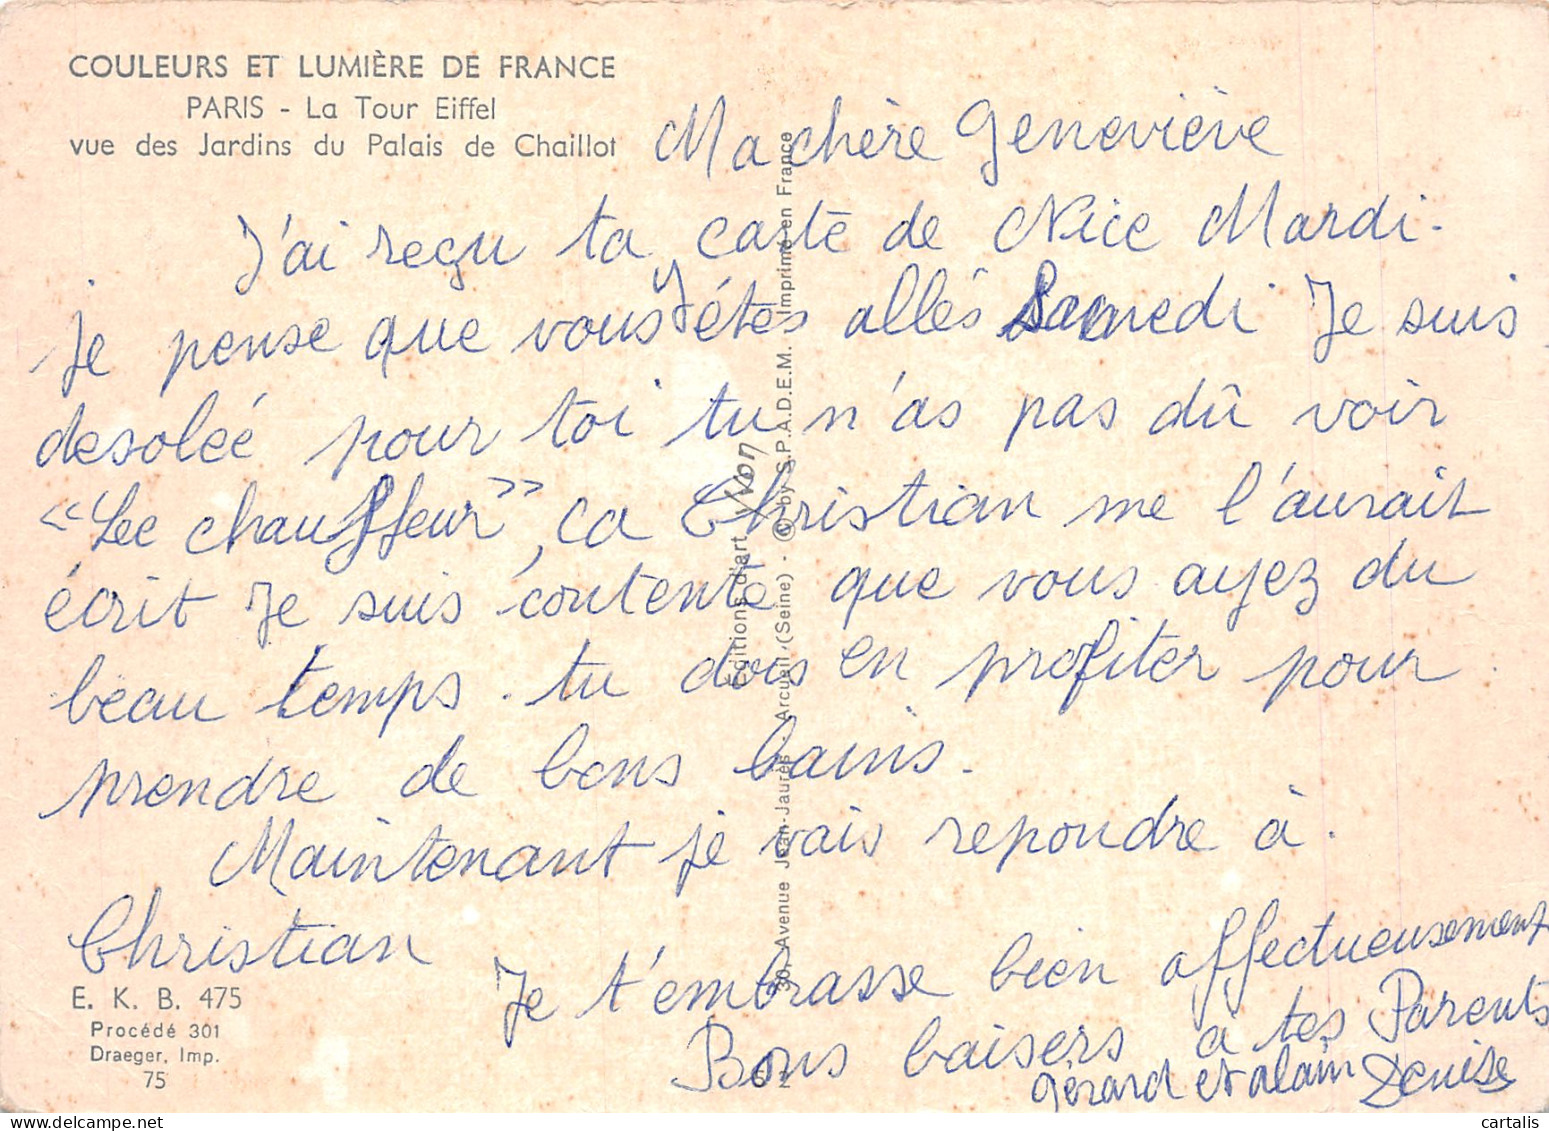 COULEURS ET LUMIÈRE DE FRANCE
PARIS - La Tour Eiffel
vue des Jardins du Palais de Chaillot
Ma chère Geneviève
J'ai reçu ta carte de Nice Mardi.
je pense que vous y étes allés Samedi Je suis
desolée pour toi tu n'as pas dû voir
"Lee chauffeur", ca Christian me l'aurait
écrit Je suis contente que vous ayez du
beau temps. tu dois en profiter pour
prendre de bons bains.
Maintenant je vais repondre à
Christian
Je t'embrasse bien affectueusement
Bons baisers a tes Parents
Gérard et alain Denise
E. K. B. 475
Procédé 301
Draeger, Imp.
75
Éditions d'art Yvon
30, Avenue Jean-Jaurès - Arcueil (Seine) - © by S.P.A.D.E.M. Imprimé en France
cartalis